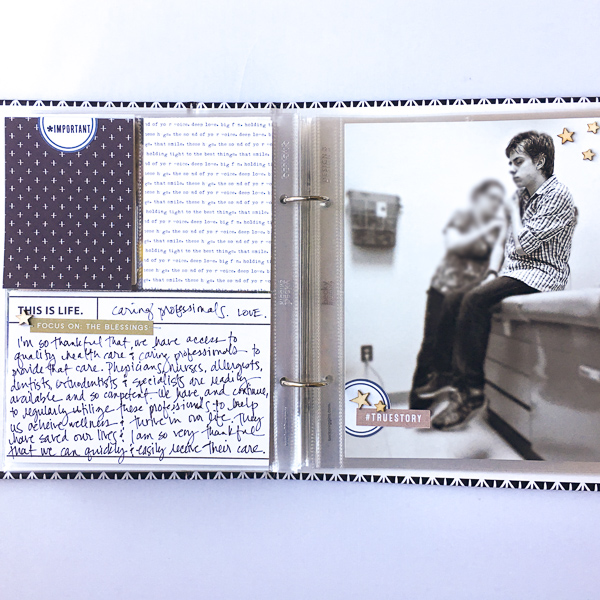 *IMPORTANT
deep love. big
holding tight to the best things. that smile.
THIS IS LIFE.
caring professionals. LOVE.
FOCUS ON: THE BLESSINGS
I'm so thankful that we have access to
quality health care & caring professionals to
provide that care. Physicians, nurses, allergists,
dentists, orthodontists & specialists are readily
available and so competent. We have, and continue,
to regularly utilize these professionals to help
us acheive wellness & thrive in our life. They
have saved our lives & I am so very thankful
that we can quickly & easily receive their care.
#TRUESTORY